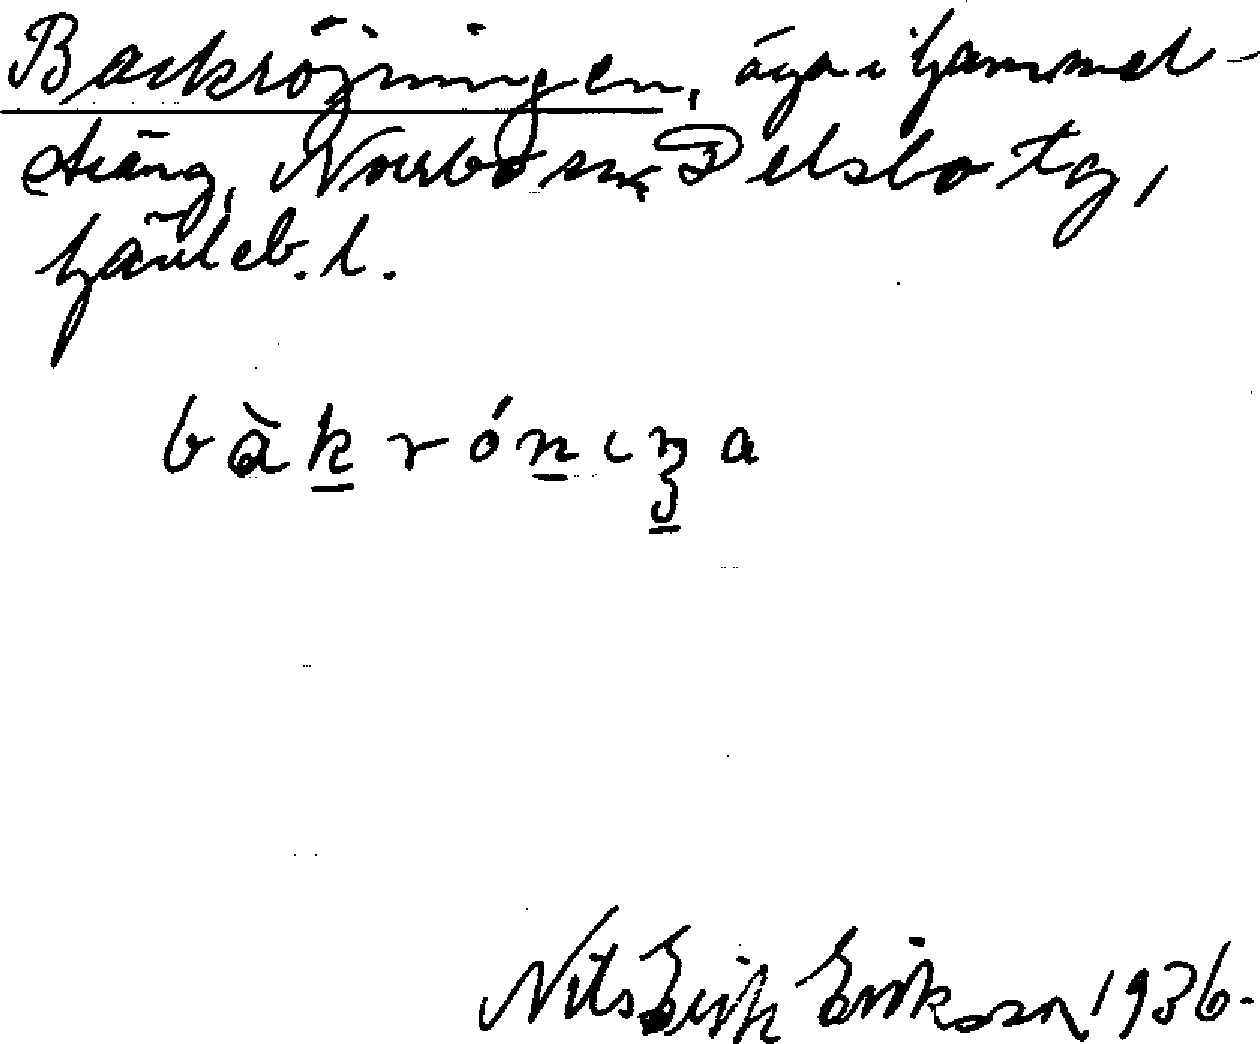 Backröjningen, äga i Gammel-
sträng, Norrbo sn, Delsbo tg,
Gävleb. l.
bàk̲ róṉɩŋ̲a
Nils Erik Eriksson 1936.